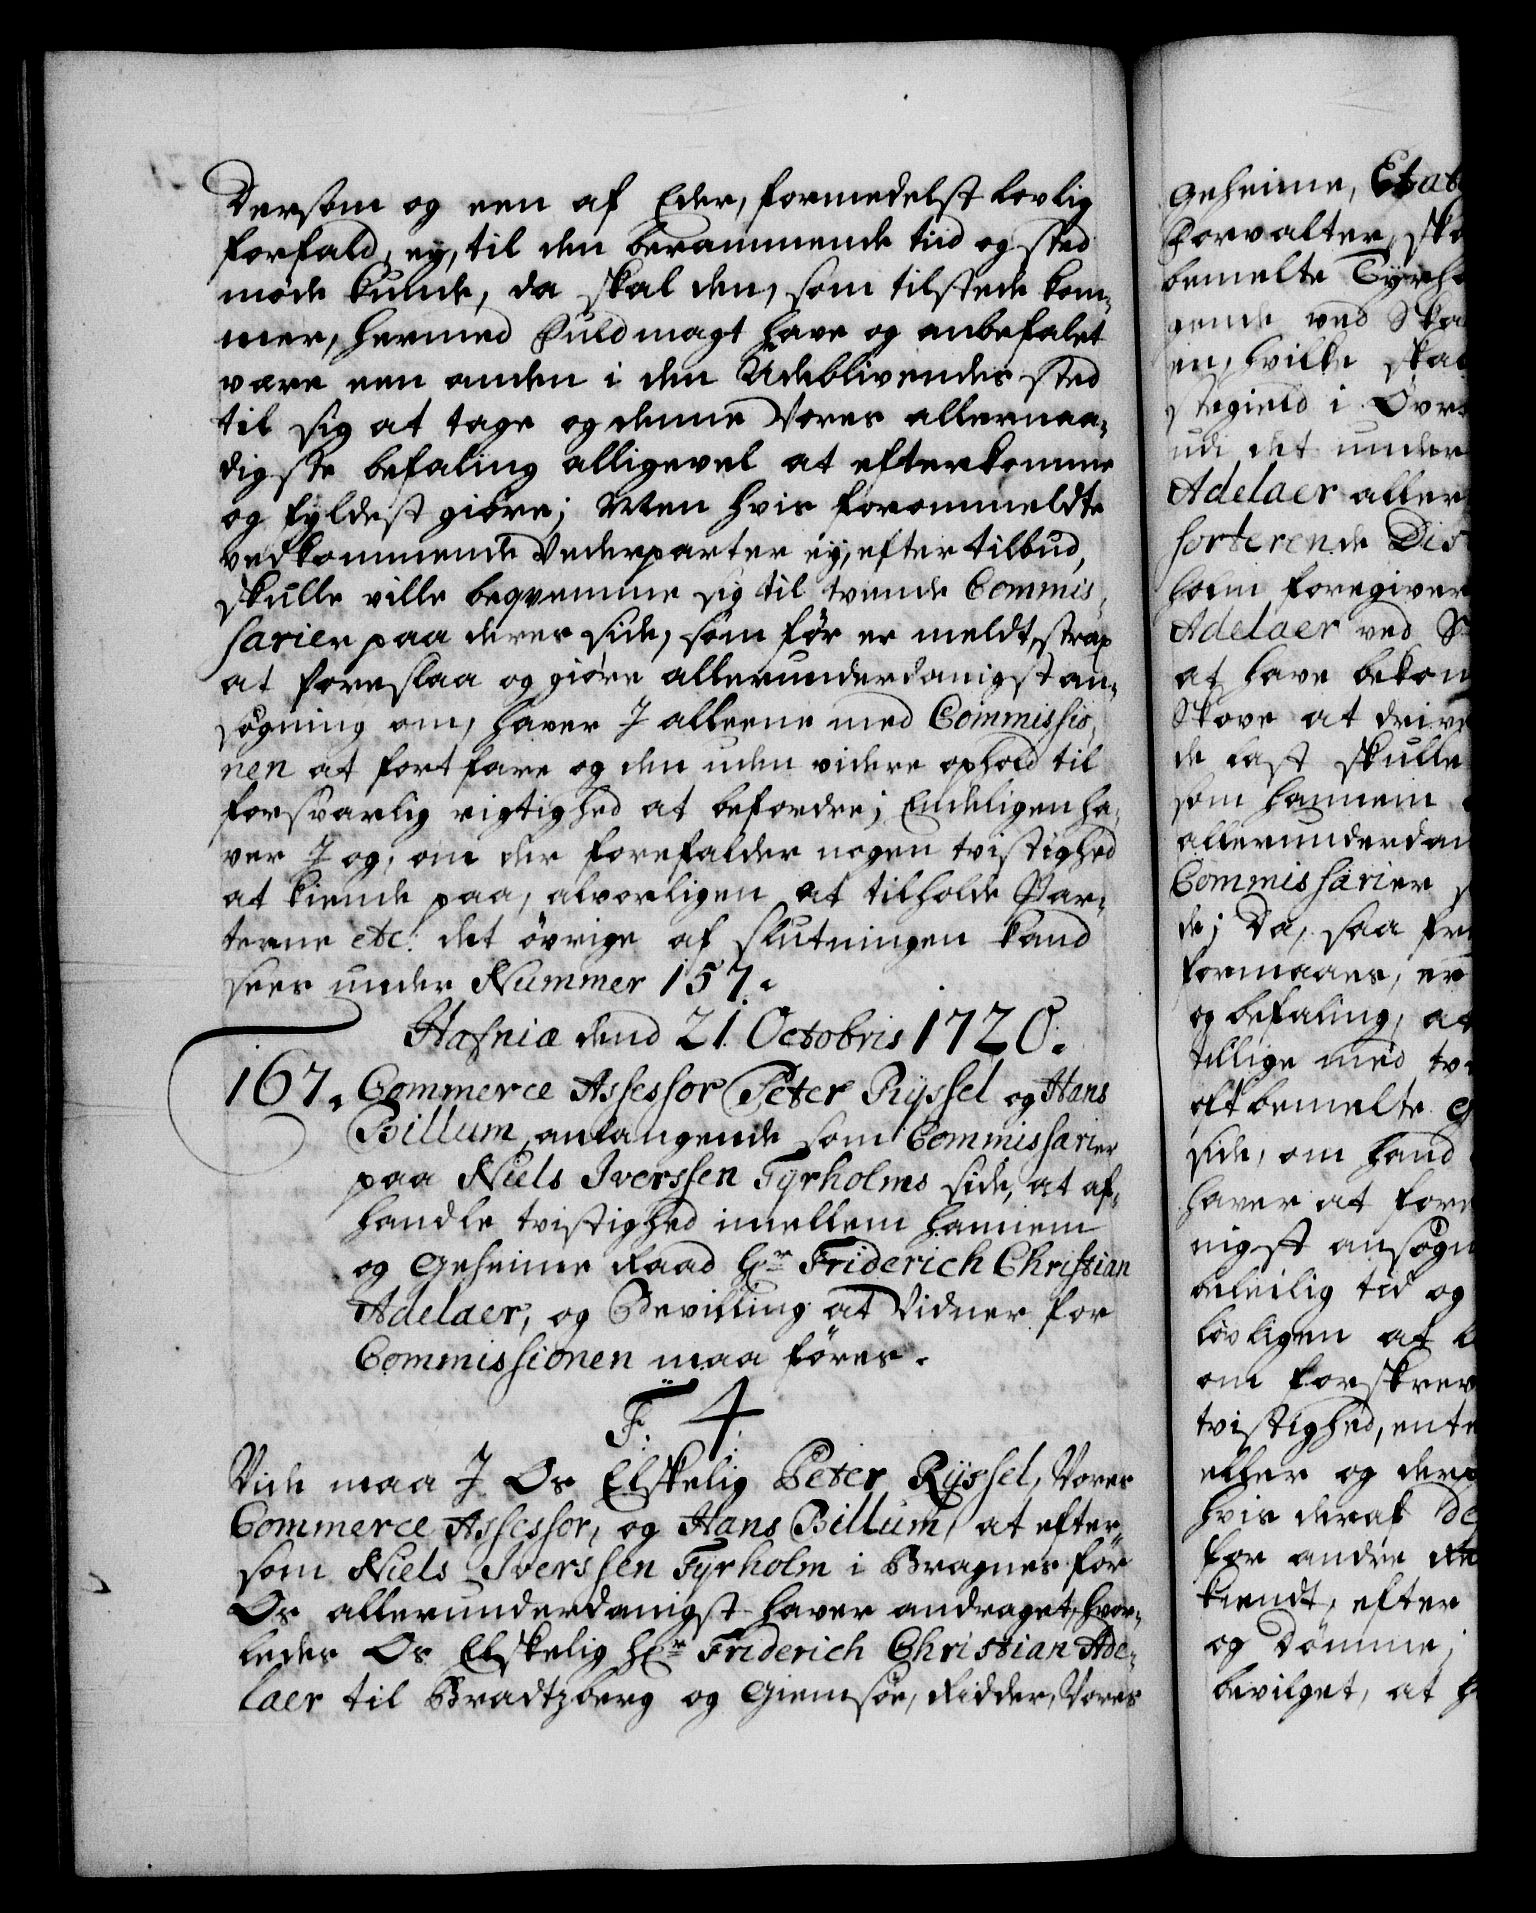 Dersom og een af Eder, formedelst lovlig
forfald, ey, til den berammende tiid og sted
møde kunde, da skal den, som tilstede kom-
mer, hermed Fuldmagt have og anbefalet
være een anden i den Udeblivendes sted
til sig at tage og denne Vores allernaa-
digste befaling alligevel at efterkomme
og fyldest giøre; Men hvis forommeldte
vedkommende Vederparter ey, efter tilbud,
skulle ville beqvemme sig til tvende Commis-
sarier paa deres side, som før er meldt, strax
at foreslaa og giøre allerunderdanigst an-
søgning om, haver I alleene med Commissio-
nen at fortfare og den uden videre ophold til
forsvarlig rigtighed at befordre; Endeligen ha-
ver I og, om der forefalder nogen tvistighed
at kiende paa, alvorligen at tilholde Par-
terne etc: det øvrige af slutningen kand
sees under Nummer 157.
Hafniæ dend 21. Octobris 1720.
167. Commerce Assessor Peter Ryssel og Hans
Billum anlangende som Commissarier
paa Niels Iverssen Tyrholms side, at af-
handle tvistighed imellem hannem
og Geheime Raad Hr Friderich Christian
Adelaer, og Bevilling at Vidner for
Commissionen maa føres.
F. 4.
Vide maa I Os Elskelig Peter Ryssel, Vores
Commerce Assessor, og Hans Billum, at efter-
som Niels Iverssen Tyrholm i Bragnes for
Os allerunderdanigst haver andraget, hvor-
ledes Os Elskelig Hr Friderich Christian Ade-
laer til Bradtzberg og Giemsøe, Ridder, Vores
Geheime, Etat
Forvalter, sko
bemelte Tyrho
gende ved Ska
en, hvilke skal
udi det under
Adelaer aller
sorterende Dis
holm foregiver
Adelaer ved
at have bekom
Skove at drive
de last skulle
som hannem
allerunderdan
Commissarier
de; Da, saa fre
formaaes, er
og befaling, at
tillige med tve
oftbemelte
side, om hand
haver at fore
nigst ansøgn
beleilig tid og
lovligen at
om forskrev
tvistighed, ente
eller og der
hvis deraf de
for andre
kiendt, efter
og dømme;
bevilget, at h